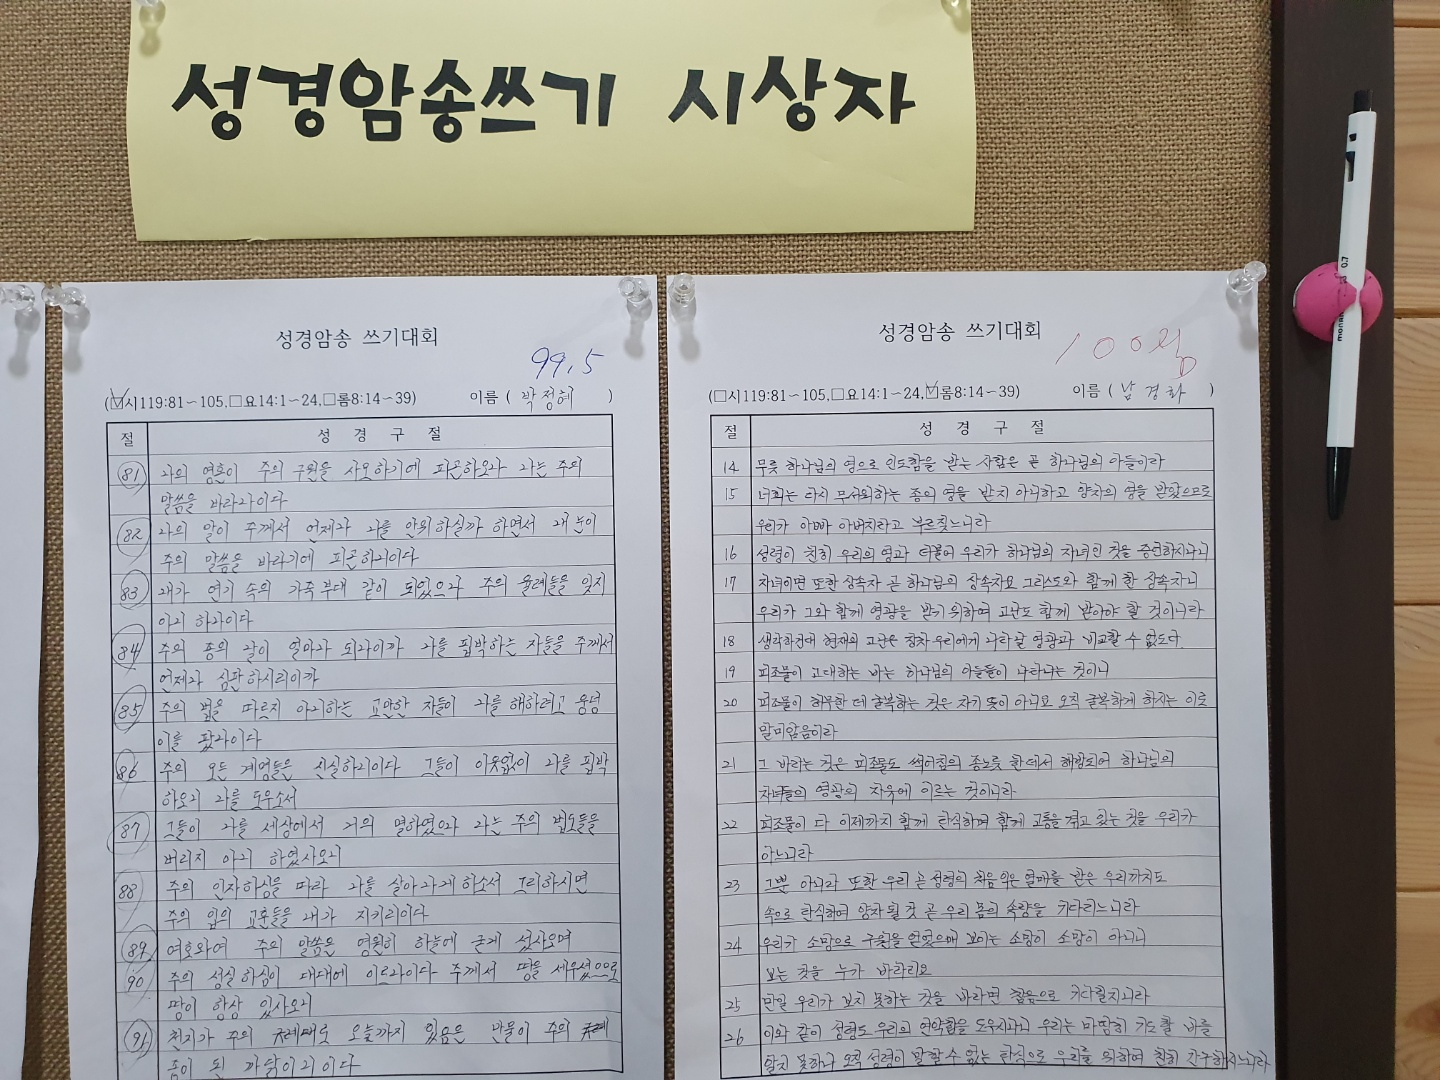 성경암송쓰기 시상자
성경암송 쓰기대회
99.5
(☑시119:81~105,□요14:1~24,□롬8:14~39) 이름 ( 박정혜 )
절 성 경 구 절
81 나의 영혼이 주의 구원을 사모하기에 피곤하오나 나는 주의
말씀을 바라나이다
82 나의 말이 주께서 언제나 나를 안위하실까 하면서 내 눈이
주의 말씀을 바라기에 피곤하니이다
83 내가 연기 속의 가죽부대 같이 되었으나 주의 율례들을 잊지
아니 하나이다
84 주의 종의 날이 얼마나 되나이까 나를 핍박하는 자들을 주께서
언제나 심판하시리이까
85 주의 법을 따르지 아니하는 교만한 자들이 나를 해하려고 웅덩
이를 팠나이다
86 주의 모든 계명들은 신실하니이다 그들이 이유없이 나를 핍박
하오니 나를 도우소서
87 그들이 나를 세상에서 거의 멸하였으나 나는 주의 법도들을
버리지 아니 하였사오니
88 주의 인자하심을 따라 나를 살아나게 하소서 그리하시면
주의 입의 교훈들을 내가 지키리이다
89 여호와여 주의 말씀은 영원히 하늘에 굳게 섰사오며
90 주의 성실하심이 대대에 이르나이다 주께서 땅을 세우셨으므로
땅이 항상 있사오니
91 천지가 주의 오늘까지 있음은 만물이 주의
종이 된 까닭이니이다
성경암송 쓰기대회
100점
(□시119:81~105,□요14:1~24,☑롬8:14~39) 이름 ( 남경화 )
절 성 경 구 절
14 무릇 하나님의 영으로 인도함을 받는 사람은 곧 하나님의 아들이라
15 너희는 다시 무서워하는 종의 영을 받지 아니하고 양자의 영을 받았으므로
우리가 아빠 아버지라고 부르짖느니라
16 성령이 친히 우리의 영과 더불어 우리가 하나님의 자녀인 것을 증언하시나니
17 자녀이면 또한 상속자 곧 하나님의 상속자요 그리스도와 함께 한 상속자니
우리가 그와 함께 영광을 받기 위하여 고난도 함께 받아야 할 것이니라
18 생각하건대 현재의 고난은 장차 우리에게 나타날 영광과 비교할 수 없도다.
19 피조물이 고대하는 바는 하나님의 아들들이 나타나는 것이니
20 피조물이 허무한 데 굴복하는 것은 자기 뜻이 아니요 오직 굴복하게 하시는 이로
말미암음이라
21 그 바라는 것은 피조물도 썩어짐의 종노릇 한 데서 해방되어 하나님의
자녀들의 영광의 자유에 이르는 것이니라
22 피조물이 다 이제까지 함께 탄식하며 함께 고통을 겪고 있는 것을 우리가
아느니라
23 그뿐 아니라 또한 우리 곧 성령의 처음 익은 열매를 받은 우리까지도
속으로 탄식하여 양자 될 것 곧 우리 몸의 속량을 기다리느니라
24 우리가 소망으로 구원을 얻었으매 보이는 소망이 소망이 아니니
보는 것을 누가 바라리요
25 만일 우리가 보지 못하는 것을 바라면 참음으로 기다릴지니라
26 이와 같이 성령도 우리의 연약함을 도우시나니 우리는 마땅히 기도할 바를
알지 못하나 오직 성령이 말할 수 없는 탄식으로 우리를 위하여 친히 간구하시느니라
0.7